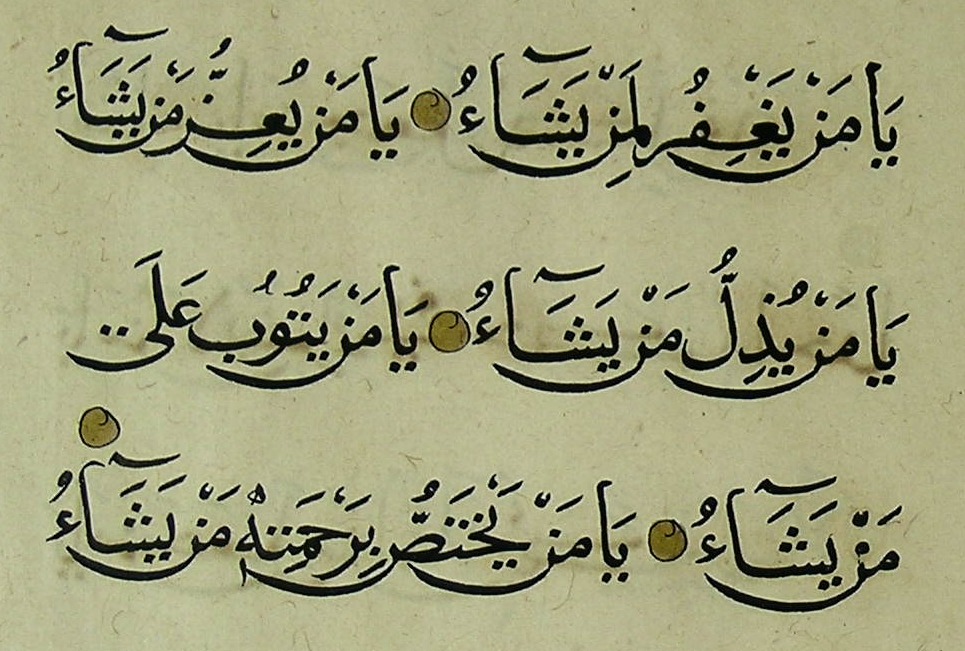 يَا مَنْ يَغْفِرُ لِمَنْ يَشَآءُ يَا مَنْ يُعِزُّ مَنْ يَشَآءُ
يَا مَنْ يُذِلُّ مَنْ يَشَآءُ يَا مَنْ يَتُوبُ عَلَي
مَنْ يَشَآءُ يَا مَنْ يَخْتَصُّ بِرَحْمَتِهٖ مَنْ يَشَآءُ